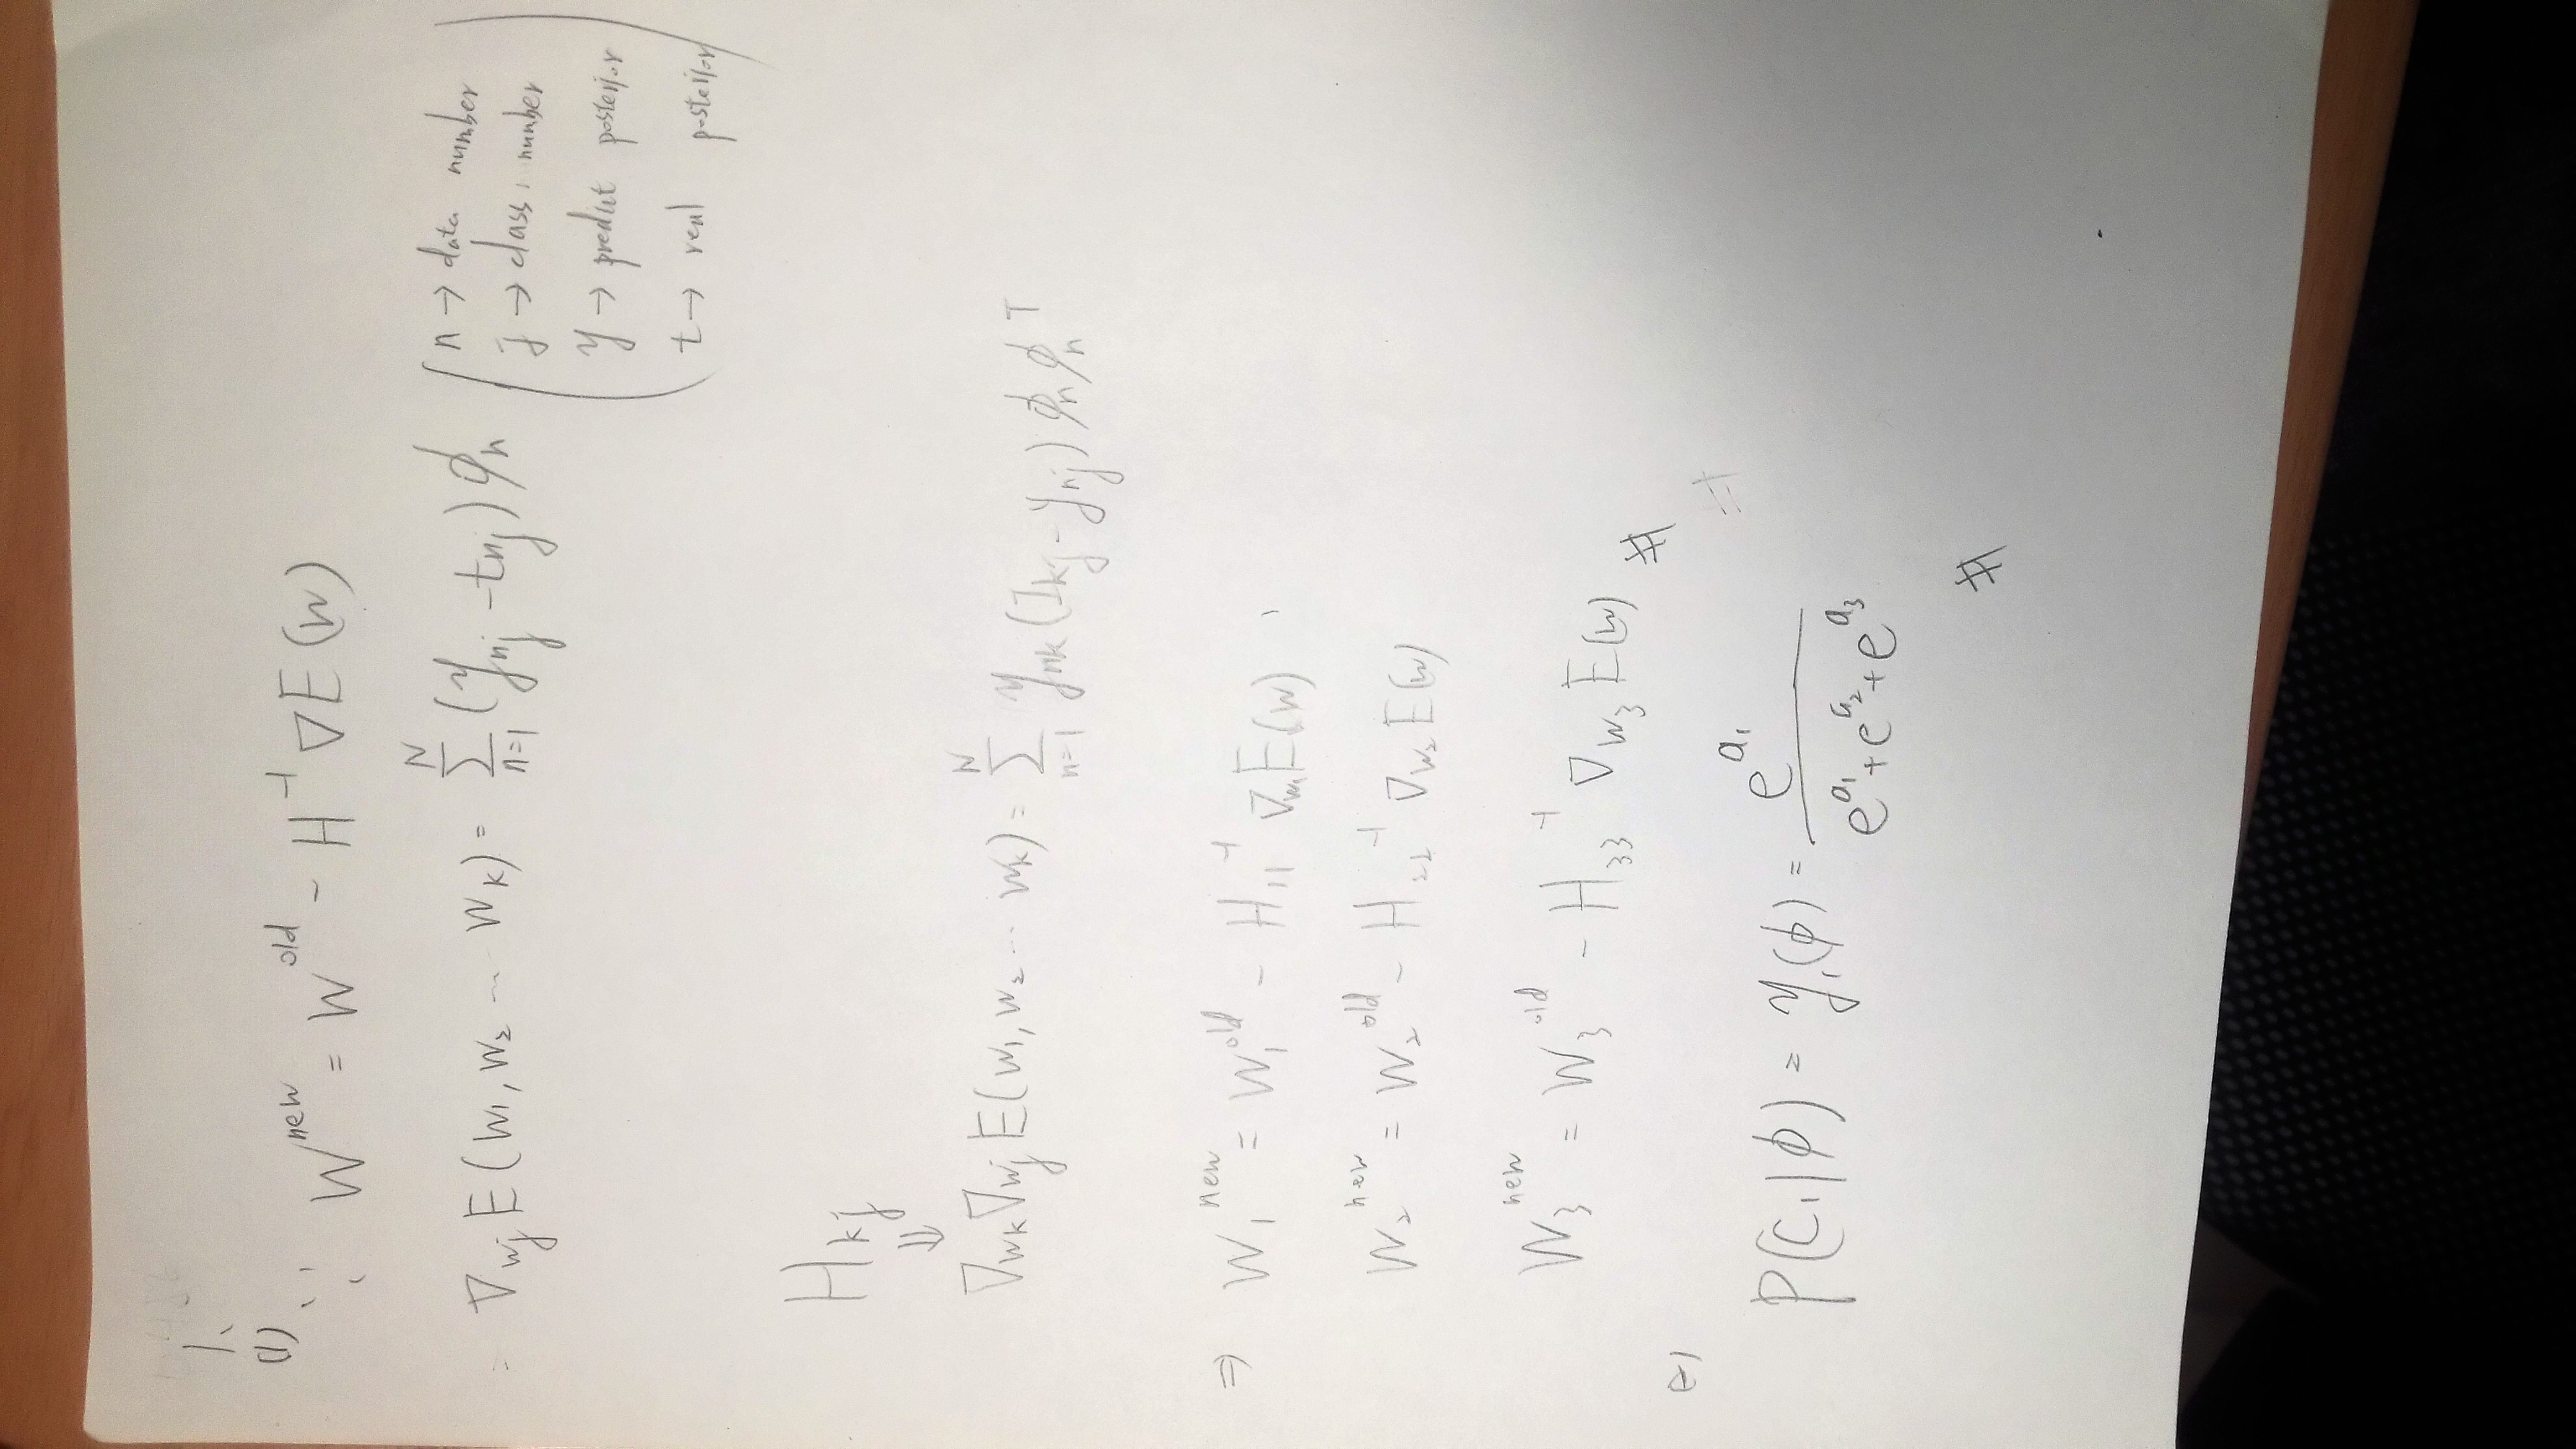 1、
(1) ∵ W^new = W^old - H^-1 ∇E(w)
∇_wj E(w_1, w_2 … w_k) = Σ_{n=1}^{N} (y_nj - t_nj) ϕ_n
n → data number
j → class number
y → predict posterior
t → real posterior
H_kj
⇓
∇_wk ∇_wj E(w_1, w_2 … w_k) = Σ_{n=1}^{N} y_nk (I_kj - y_nj) ϕ_n ϕ_n^T
⇒ W_1^new = W_1^old - H_11^-1 ∇_w1 E(w)
W_2^new = W_2^old - H_22^-1 ∇_w2 E(w)
W_3^new = W_3^old - H_33^-1 ∇_w3 E(w) #
P(C_1|ϕ) = y_1(ϕ) = e^a_1 / (e^a_1 + e^a_2 + e^a_3)
#